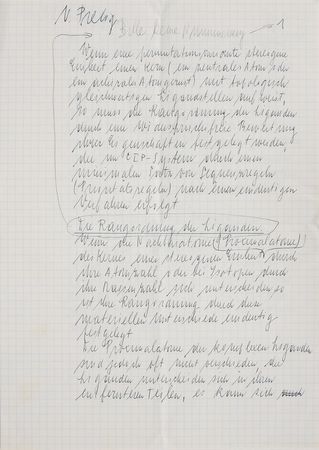 V. Prelog
Bitte keine Nummerierung 1
Wenn eine permutationsinvariante stereogene
Einheit einen Kern (ein zentrales Atom oder
ein achirales Atomgerüst) mit topologisch
gleichwertigen Ligandstellen aufweist,
so muss die Rangordnung der Liganden
durch eine widerspruchsfreie Bewertung
ihrer Eigenschaften festgelegt werden,
die im CIP-System durch einen
minimalen Satz von Sequenzregeln
(Prioritätsregeln) nach einem eindeutigen
Verfahren erfolgt
Die Rangordnung der Liganden.
Wenn die Nachbaratome (Proximalatome)
des Kernes einer stereogenen Einheit durch
ihre Atomzahl oder bei Isotopen durch
ihre Massenzahl sich unterscheiden, so
ist ihre Rangordnung durch diese
materiellen Unterschiede eindeutig
festgelegt.
Die Proximalatome der komplexen Liganden
sind jedoch oft nicht verschieden, die
Liganden unterscheiden sich in ihren
entfernteren Teilen, es kann sich